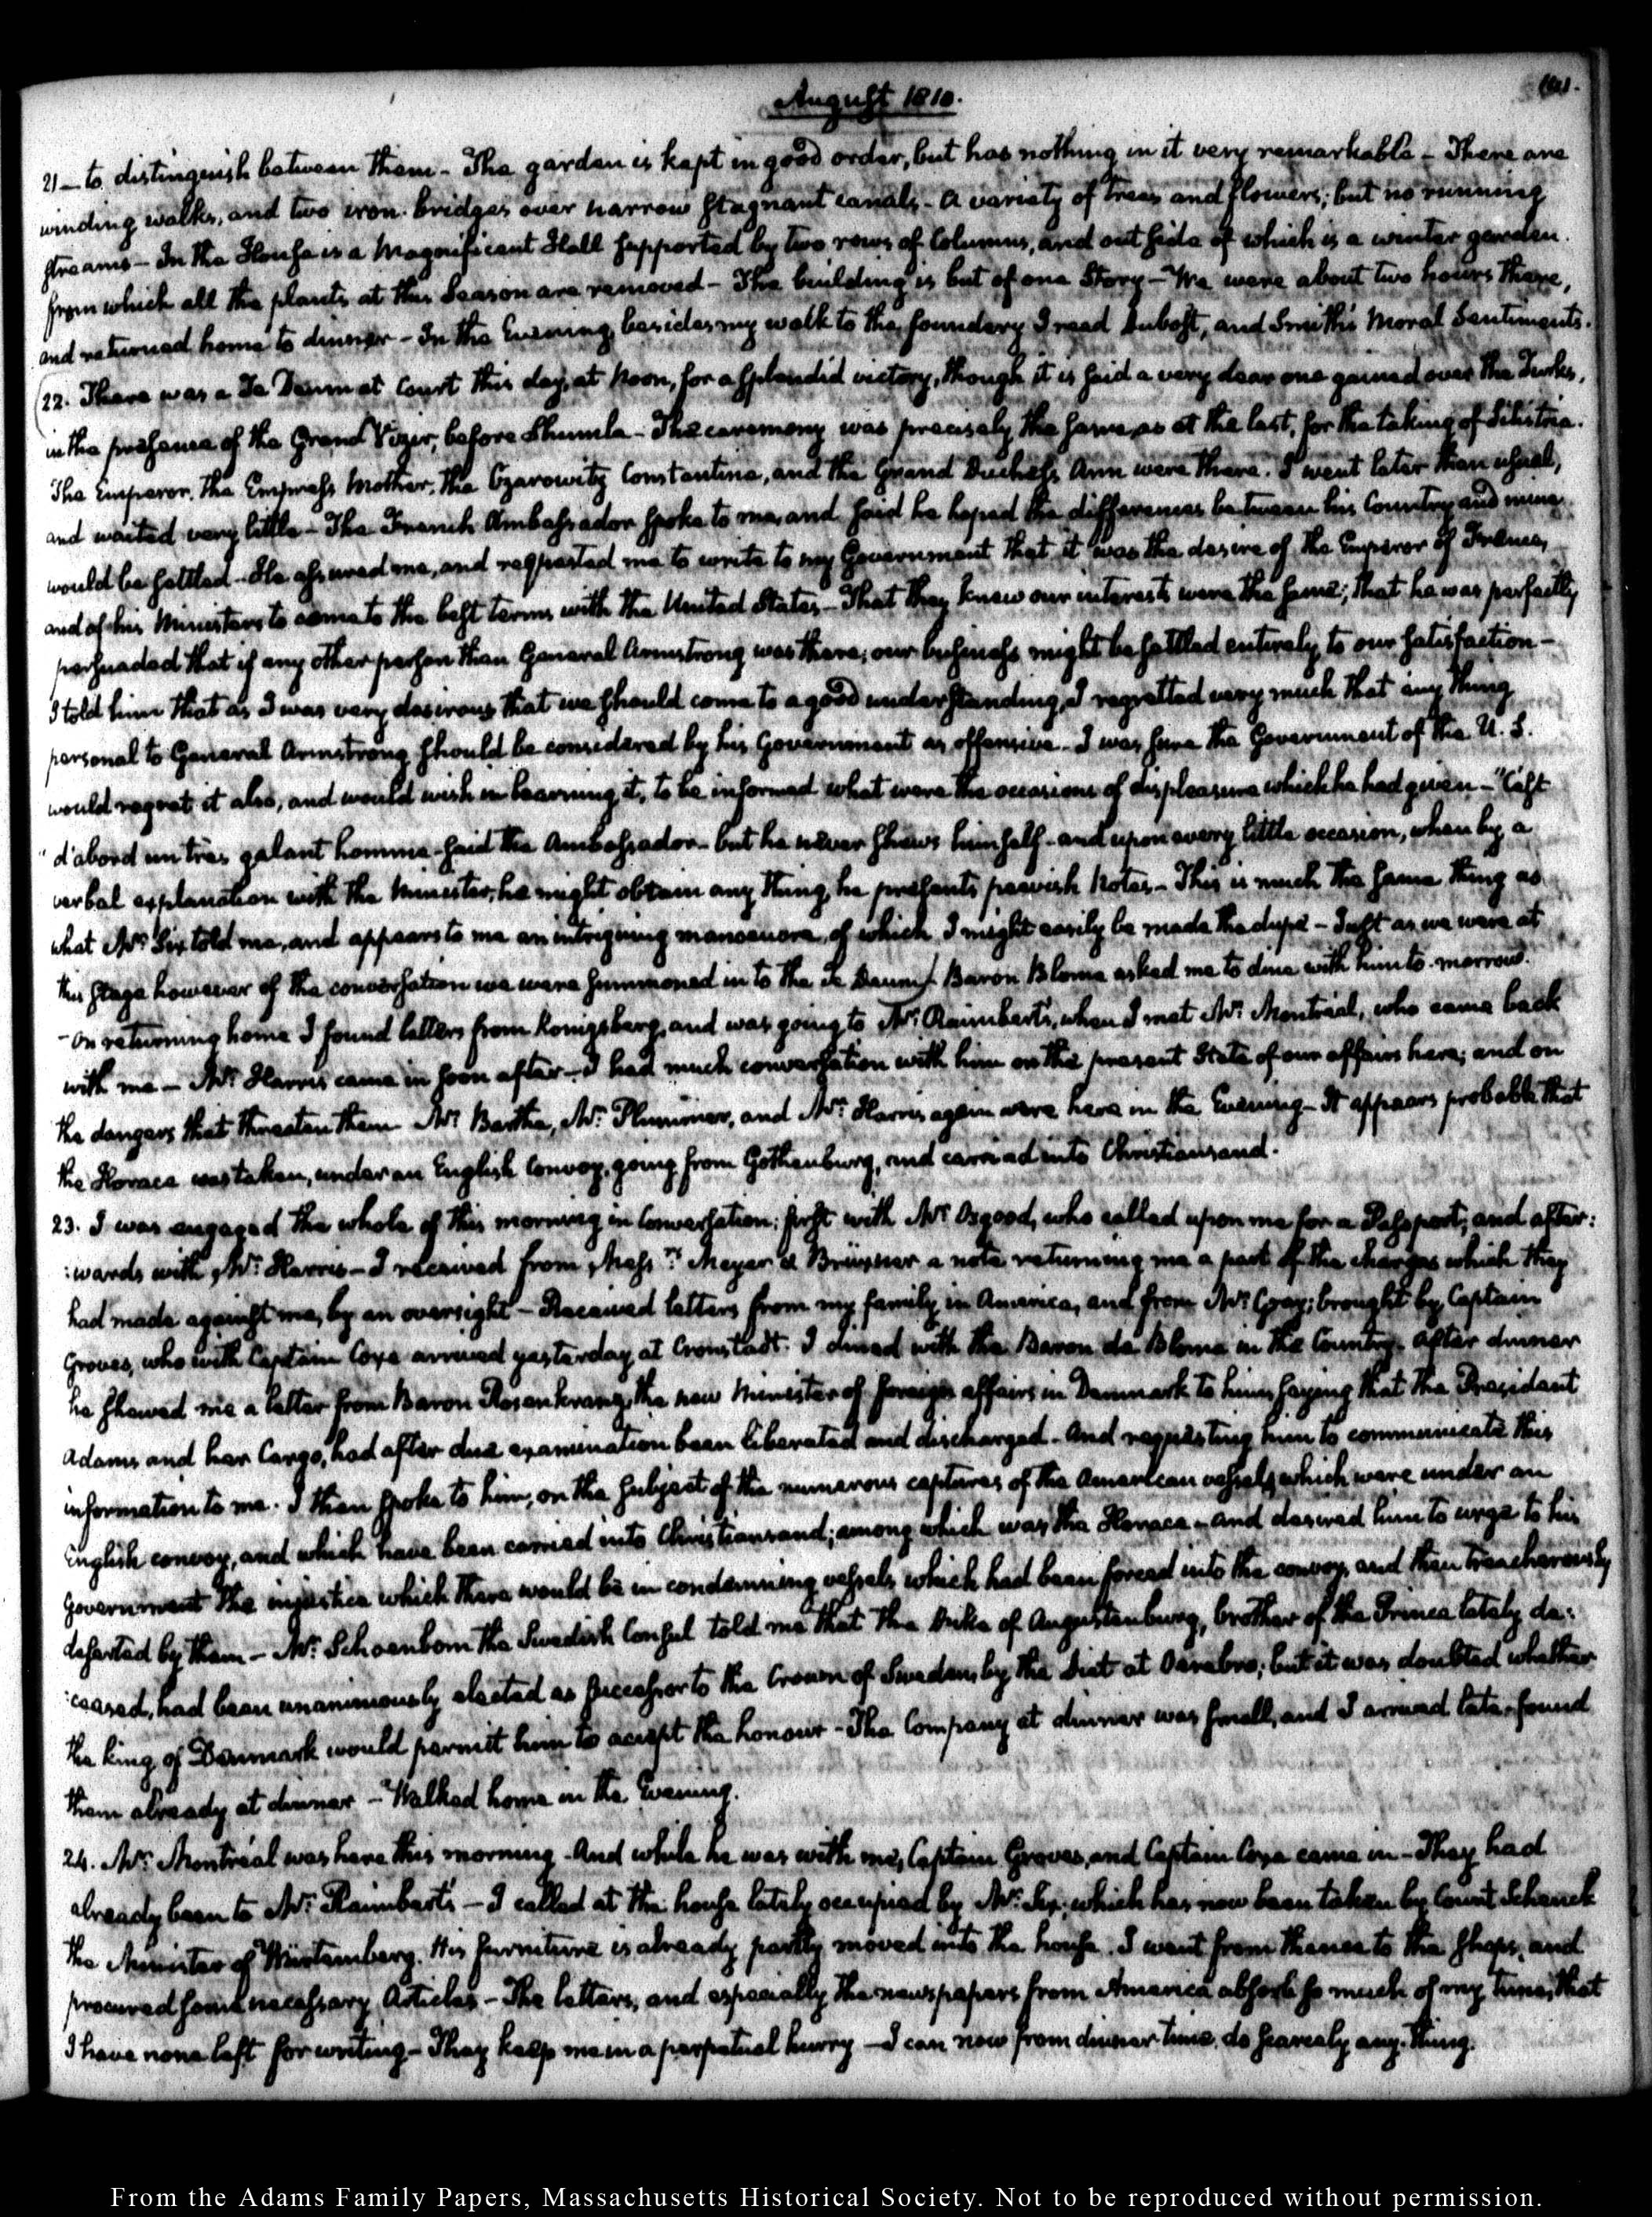 August 1810.
21 — to distinguish between them - The garden is kept in good order, but has nothing in it very remarkable - There are
winding walks, and two iron bridges over narrow stagnant canals - a variety of trees and flowers; but no running
streams - In the House is a Magnificent Hall supported by two rows of Columns, and out side of which is a winter garden.
from which all the plants at this Season are removed - The building is but of one Story - We were about two hours there,
and returned home to dinner - In the Evening, besides my walk to the foundery I read Dubost, and Smith's Moral Sentiments.
22. There was a Te Deum at Court this day, at Noon, for a splendid victory, though it is said a very dear one gained over the Turks,
in the presence of the Grand Vizir, before Shumla - The ceremony was precisely the same as at the last, for the taking of Silistria.
The Emperor, the Empress Mother, the Czarowitz Constantine, and the Grand Duchess Ann were there. I went later than usual,
and waited very little - The French Ambassador spoke to me, and said he hoped the differences between his Country and mine
would be settled - He assured me, and requested me to write to my Government that it was the desire of the Emperor of France,
and of his Ministers to come to the best terms with the United States - That they knew our interests were the same; that he was perfectly
persuaded that if any other person than General Armstrong was there, our business might be settled entirely to our satisfaction -
I told him that as I was very desirous that we should come to a good understanding, I regretted very much that any thing
personal to General Armstrong should be considered by his Government as offensive - I was sure the Government of the U. S.
would regret it also, and would wish in learning it, to be informed what were the occasions of displeasure which he had given - "C'est
"d'abord un très galant homme said the Ambassador - but he never shews himself - and upon every little occasion, when by a
verbal explanation with the Minister, he might obtain any thing, he presents peevish Notes - This is much the same thing as
what Mr. Six told me, and appears to me an intriguing manoeuvre, of which I might easily be made the dupe - Just as we were at
this stage however of the conversation we were summoned in to the Te Deum / Baron Blome asked me to dine with him to-morrow.
- On returning home I found letters from Konigsberg, and was going to Mr. Raimbert's, when I met Mr. Montréal, who came back
with me - Mr. Harris came in soon after - I had much conversation with him on the present State of our affairs here; and on
the dangers that threaten them - Mr. Bertha, Mr. Plummer, and Mr. Harris again were here in the Evening - It appears probable that
the Horace was taken, under an English Convoy, going from Gothenburg, and carried into Christiansand.
23. I was engaged the whole of this morning in Conversation; first with Mr. Osgood, who called upon me for a Passport; and after:
:wards with Mr. Harris - I received from Messrs. Meyer & Brüxner a note returning me a part of the charges which they
had made against me, by an oversight - Received letters from my family in America, and from Mr. Gray; brought by Captain
Groves, who with Captain Coye arrived yesterday at Cronstadt. I dined with the Baron de Blome in the Country. After dinner
he shewed me a letter from Baron Rosenkranz, the new Minister of foreign affairs in Denmark to him, saying that the President
Adams and her Cargo, had after due examination been liberated and discharged - And requesting him to communicate this
information to me. I then spoke to him, on the subject of the numerous captures of the American vessels, which were under an
English convoy, and which have been carried into Christiansand; among which was the Horace - and desired him to urge to his
Government the injustice which there would be in condemning vessels which had been forced into the convoy, and then treacherously
deserted by them - Mr. Schoenbom the Swedish Consul told me that the Duke of Augustenburg, brother of the Prince lately de:
:ceased, had been unanimously elected as successor to the Crown of Sweden by the Diet at Oerebro; but it was doubted whether
the king of Denmark would permit him to accept the honour - The Company at dinner was small, and I arrived late - found
them already at dinner - Walked home in the Evening.
24. Mr. Montréal was here this morning - And while he was with me, Captain Groves, and Captain Coye came in - They had
already been to Mr. Raimbert's - I called at the house lately occupied by Mr. Six; which has now been taken by Count Schenck
the Minister of Würtemberg. His furniture is already partly moved into the house. I went from thence to the shops, and
procured some necessary Articles - The letters, and especially the newspapers from America absorb so much of my time, that
I have none left for writing - They keep me in a perpetual hurry - I can now from dinner time, do scarcely any thing.
From the Adams Family Papers, Massachusetts Historical Society. Not to be reproduced without permission.